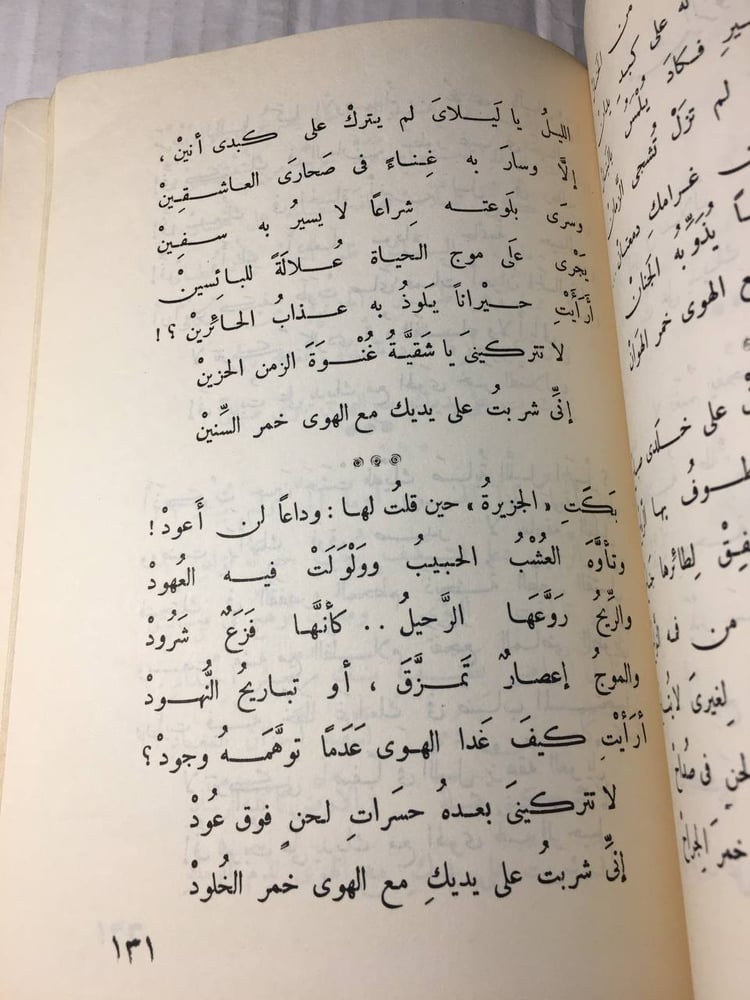 الليلُ يا لَيـلاىَ لم يتركْ على كبدى أنينْ ،
إلَّا وسارَ به غِناءً فى صَحارَى العاشقِينْ
وسرَى بلَوعتـه شِراعًا لا يسيرُ به سفينْ
يَجْرى عَلَى موج الحياة عُلالَةً للبائِسينْ
أرَأَيْتِ حيْرانًا يَلوذُ به عذابُ الحائرينْ ؟ !
لا تتركينى يَا شَقيَّةُ غُنْوَةَ الزمن الحزينْ
إنِّى شربتُ على يديك مع الهوى خمر السِّنينْ
بَكَتِ « الجزيرةُ » حين قلتُ لها : وداعًا لن أَعودْ !
وتأوَّهَ العُشْبُ الحبيبُ ووَلْوَلَتْ فيه العُهودْ
والرِّيحُ رَوَّعَها الرَّحيلُ .. كأنَّها فَزَعٌ شَرُودْ
والموجُ إعصارٌ تَمـزَّقَ ، أو تباريحُ النُّهودْ
أرأيْتِ كيفَ غَدا الهوى عَدَمًا توهَّمَهُ وجودْ ؟
لا تتركينىَ بعدهُ حسَراتِ لحنٍ فوق عُودْ
إنِّى شربتُ على يديكِ مع الهوى خمر الخُلودْ
١٣١